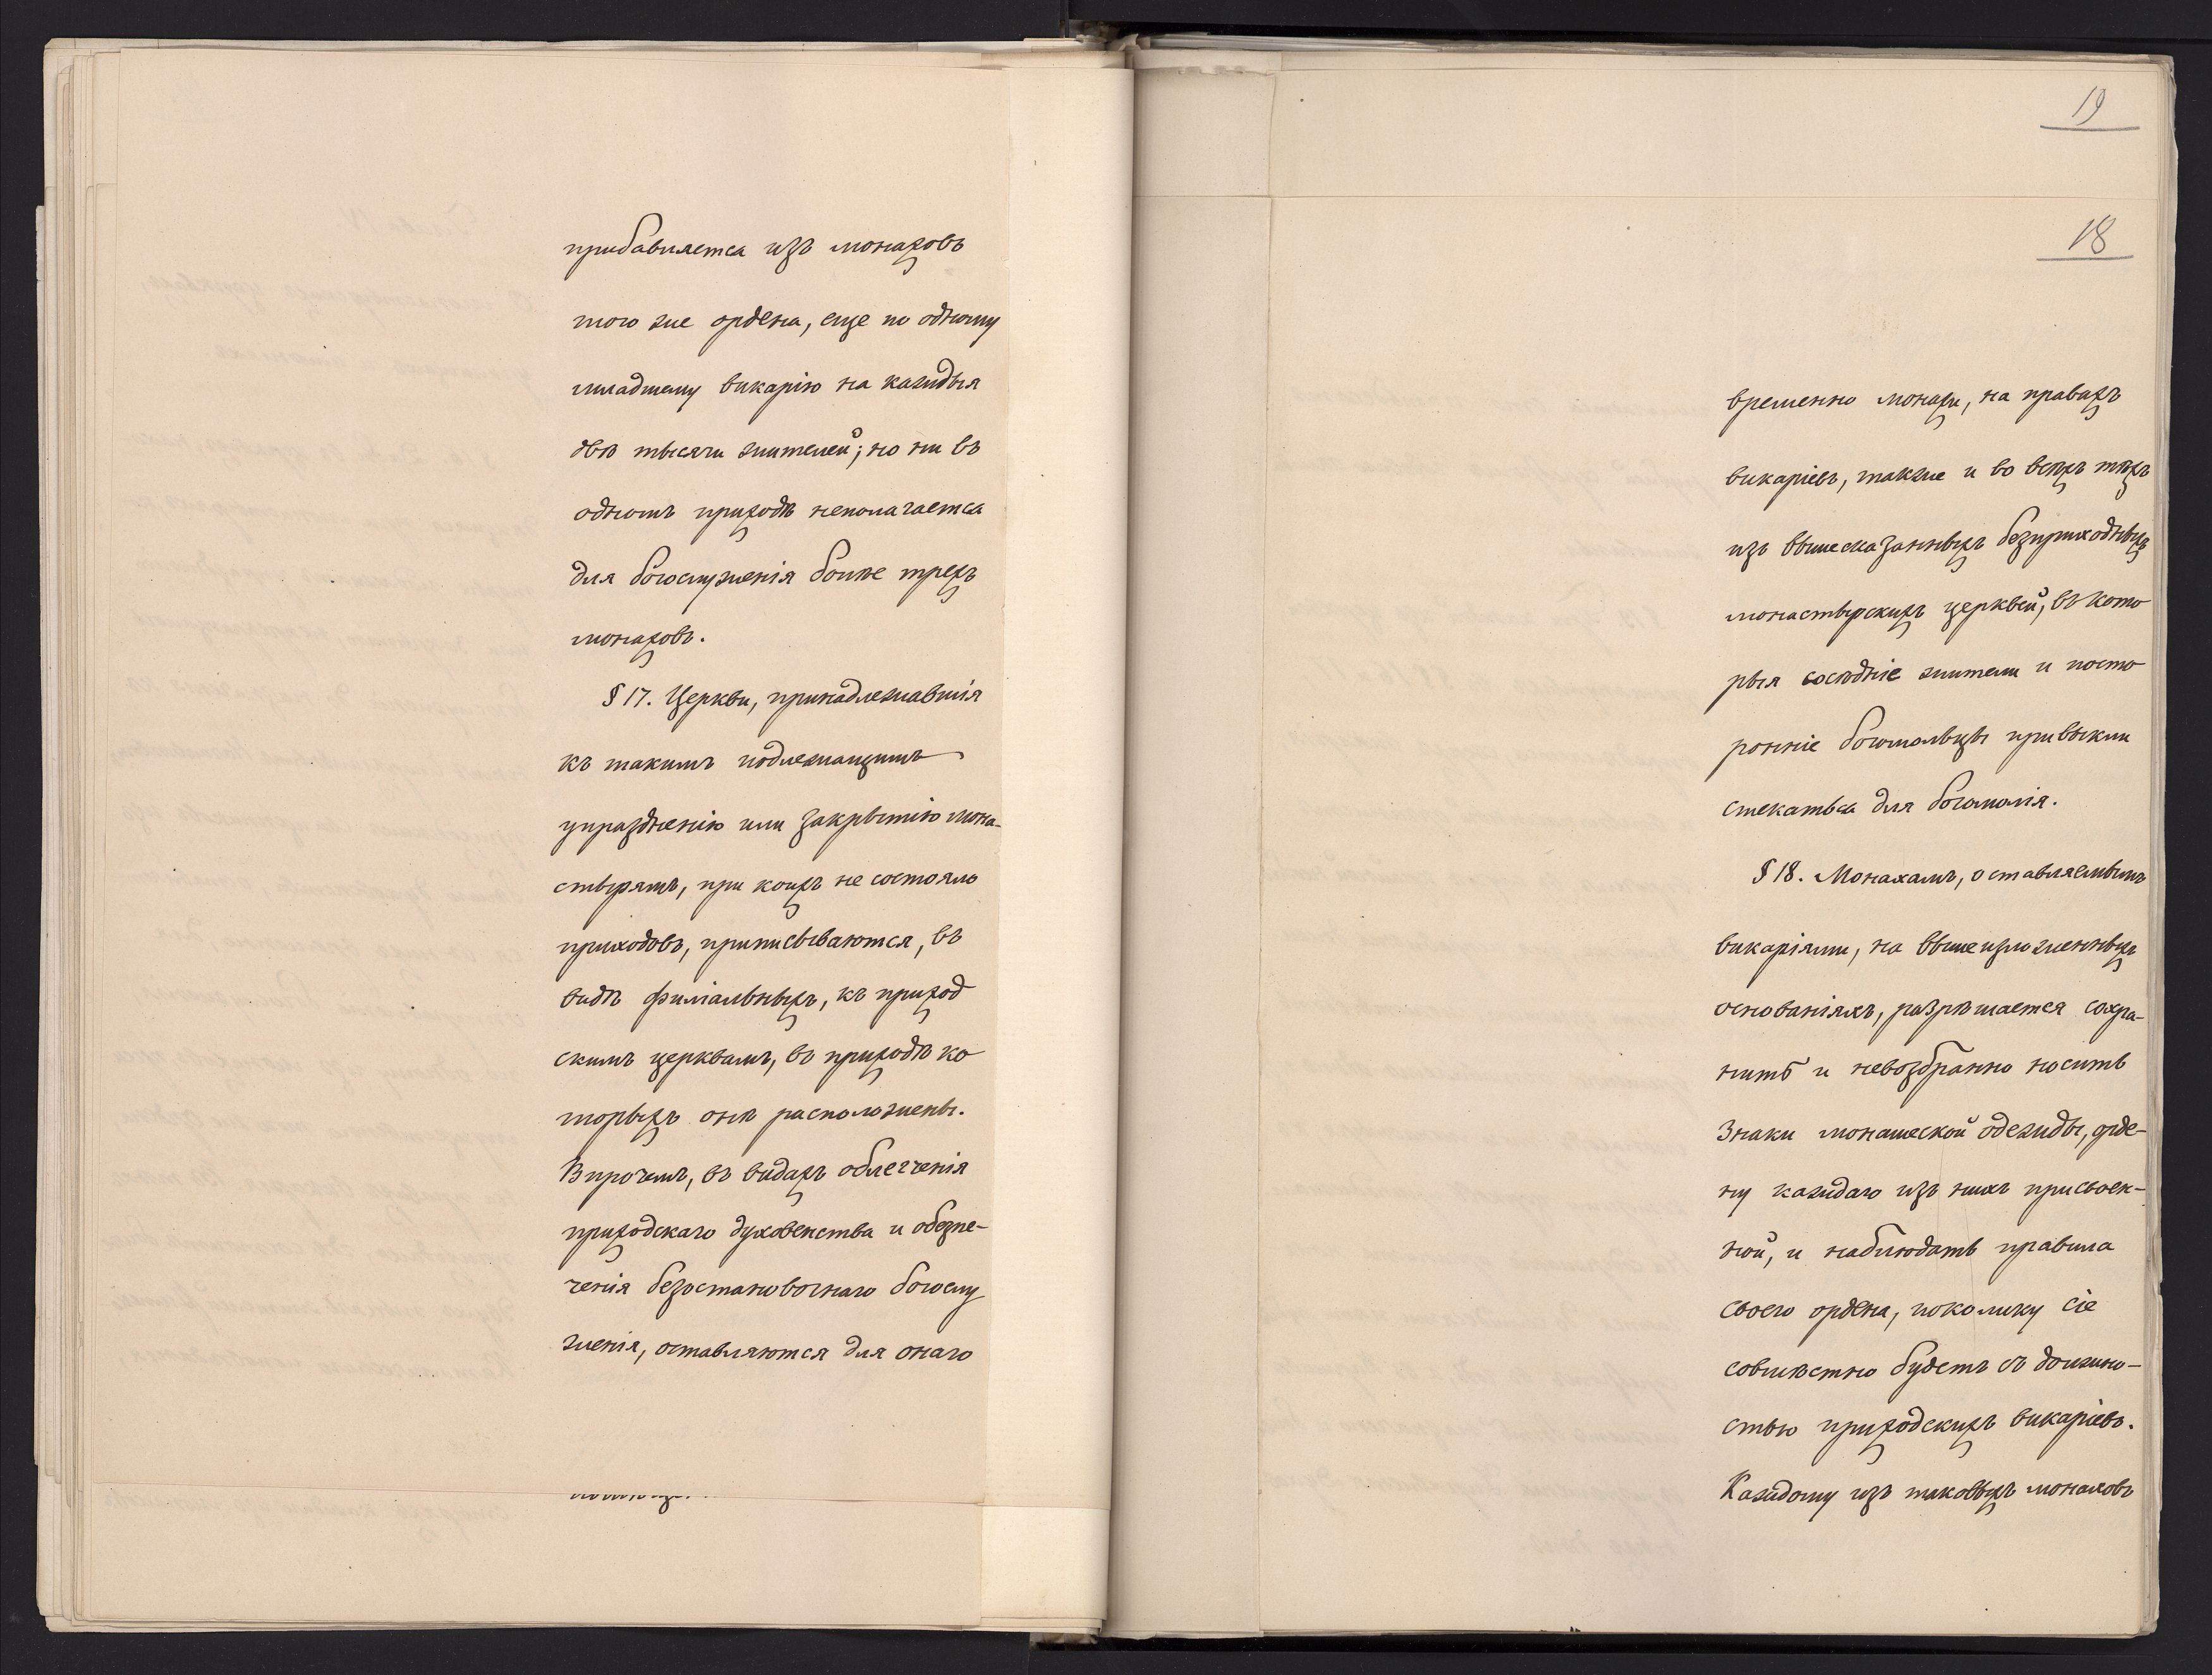 прибавляется изъ монаховъ
того же ордена, еще по одному
младшему викарію на каждыя
двѣ тысячи жителей; но ни въ
одномъ приходѣ неполагается
для богослуженія болѣе трехъ
монаховъ.
§ 17. Церкви, принадлежавшія
къ такимъ подлежащимъ
упраздненію или закрытію мона-
стырямъ, при коихъ не состояло
приходовъ, приписываются, въ
видѣ филіальныхъ, къ приход
скимъ церквамъ, въ приходѣ ко
торыхъ онѣ расположены.
Впрочемъ, въ видахъ облегченія
приходскаго духовенства и обезпе-
ченія безостановочнаго богослу
женія, оставляются для онаго
19
18
временно монахи, на правахъ
викаріевъ, также и во всѣхъ тѣхъ
изъ вышесказанныхъ безприходныхъ
монастырскихъ церквей, въ кото
рыя сосѣдніе жители и посто
ронніе богомольцы привыкли
стекаться для богомолія.
§ 18. Монахамъ, оставляемымъ
викаріями, на вышеизложенныхъ
основаніяхъ, разрѣшается сохра-
нить и невозбранно носить
знаки монашеской одежды, орде-
ну каждаго изъ нихъ присвоен-
ной, и наблюдать правила
своего ордена, поколику сіе
совмѣстно будетъ съ должно-
стью приходскихъ викаріевъ.
Каждому изъ таковыхъ монаховъ